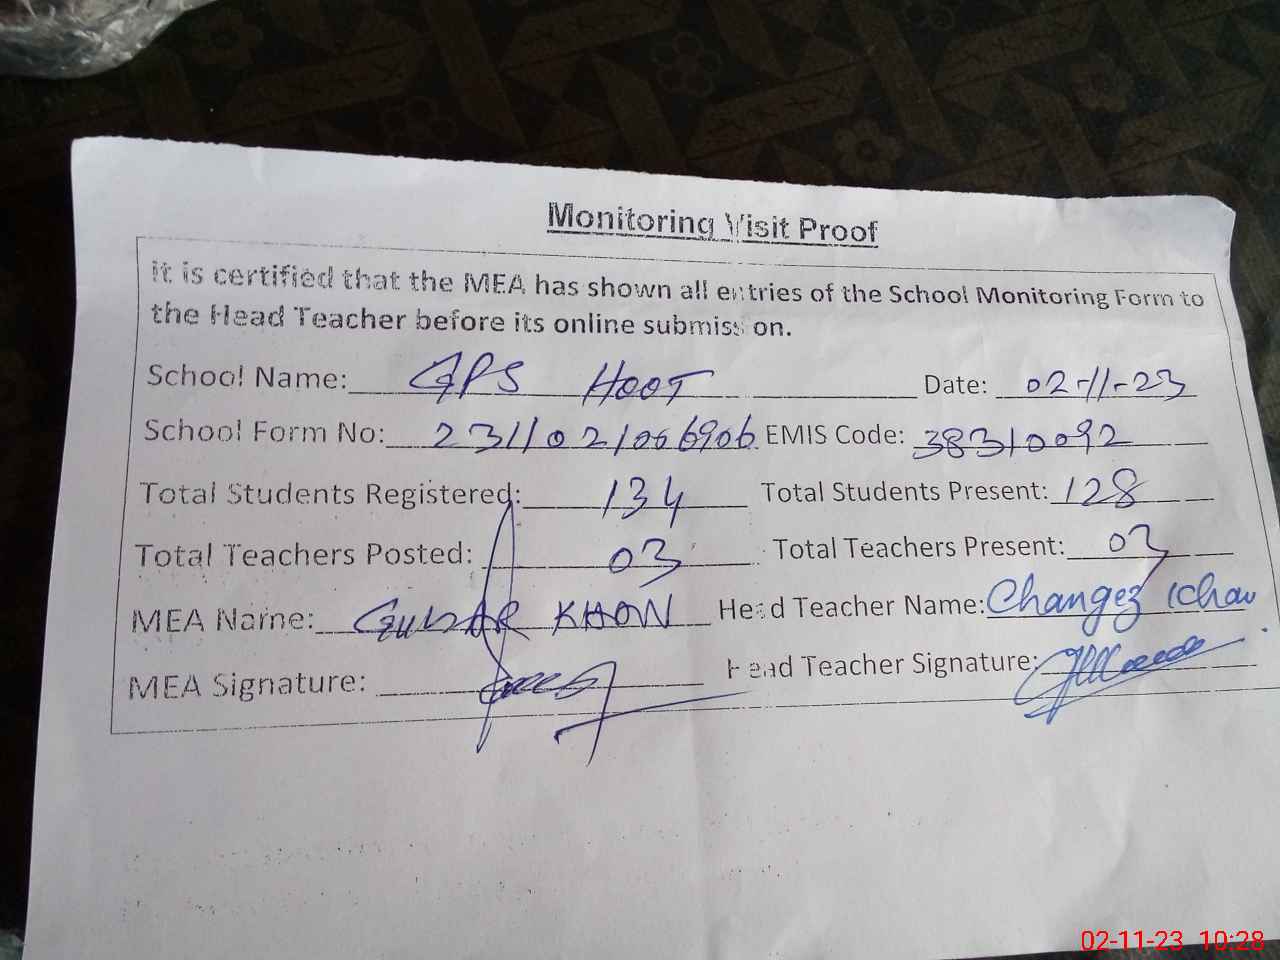 Monitoring Visit Proof
it is certified that the MEA has shown all entries of the School Monitoring Form to
the Head Teacher before its online submission.
School Name: GPS HOOT Date: 02-11-23
School Form No: 2311021006906 EMIS Code: 38310092
Total Students Registered: 134 Total Students Present: 128
Total Teachers Posted: 03 Total Teachers Present: 03
MEA Name: KHAN Head Teacher Name: Changez Khan
MEA Signature: Head Teacher Signature:
02-11-23 10:28